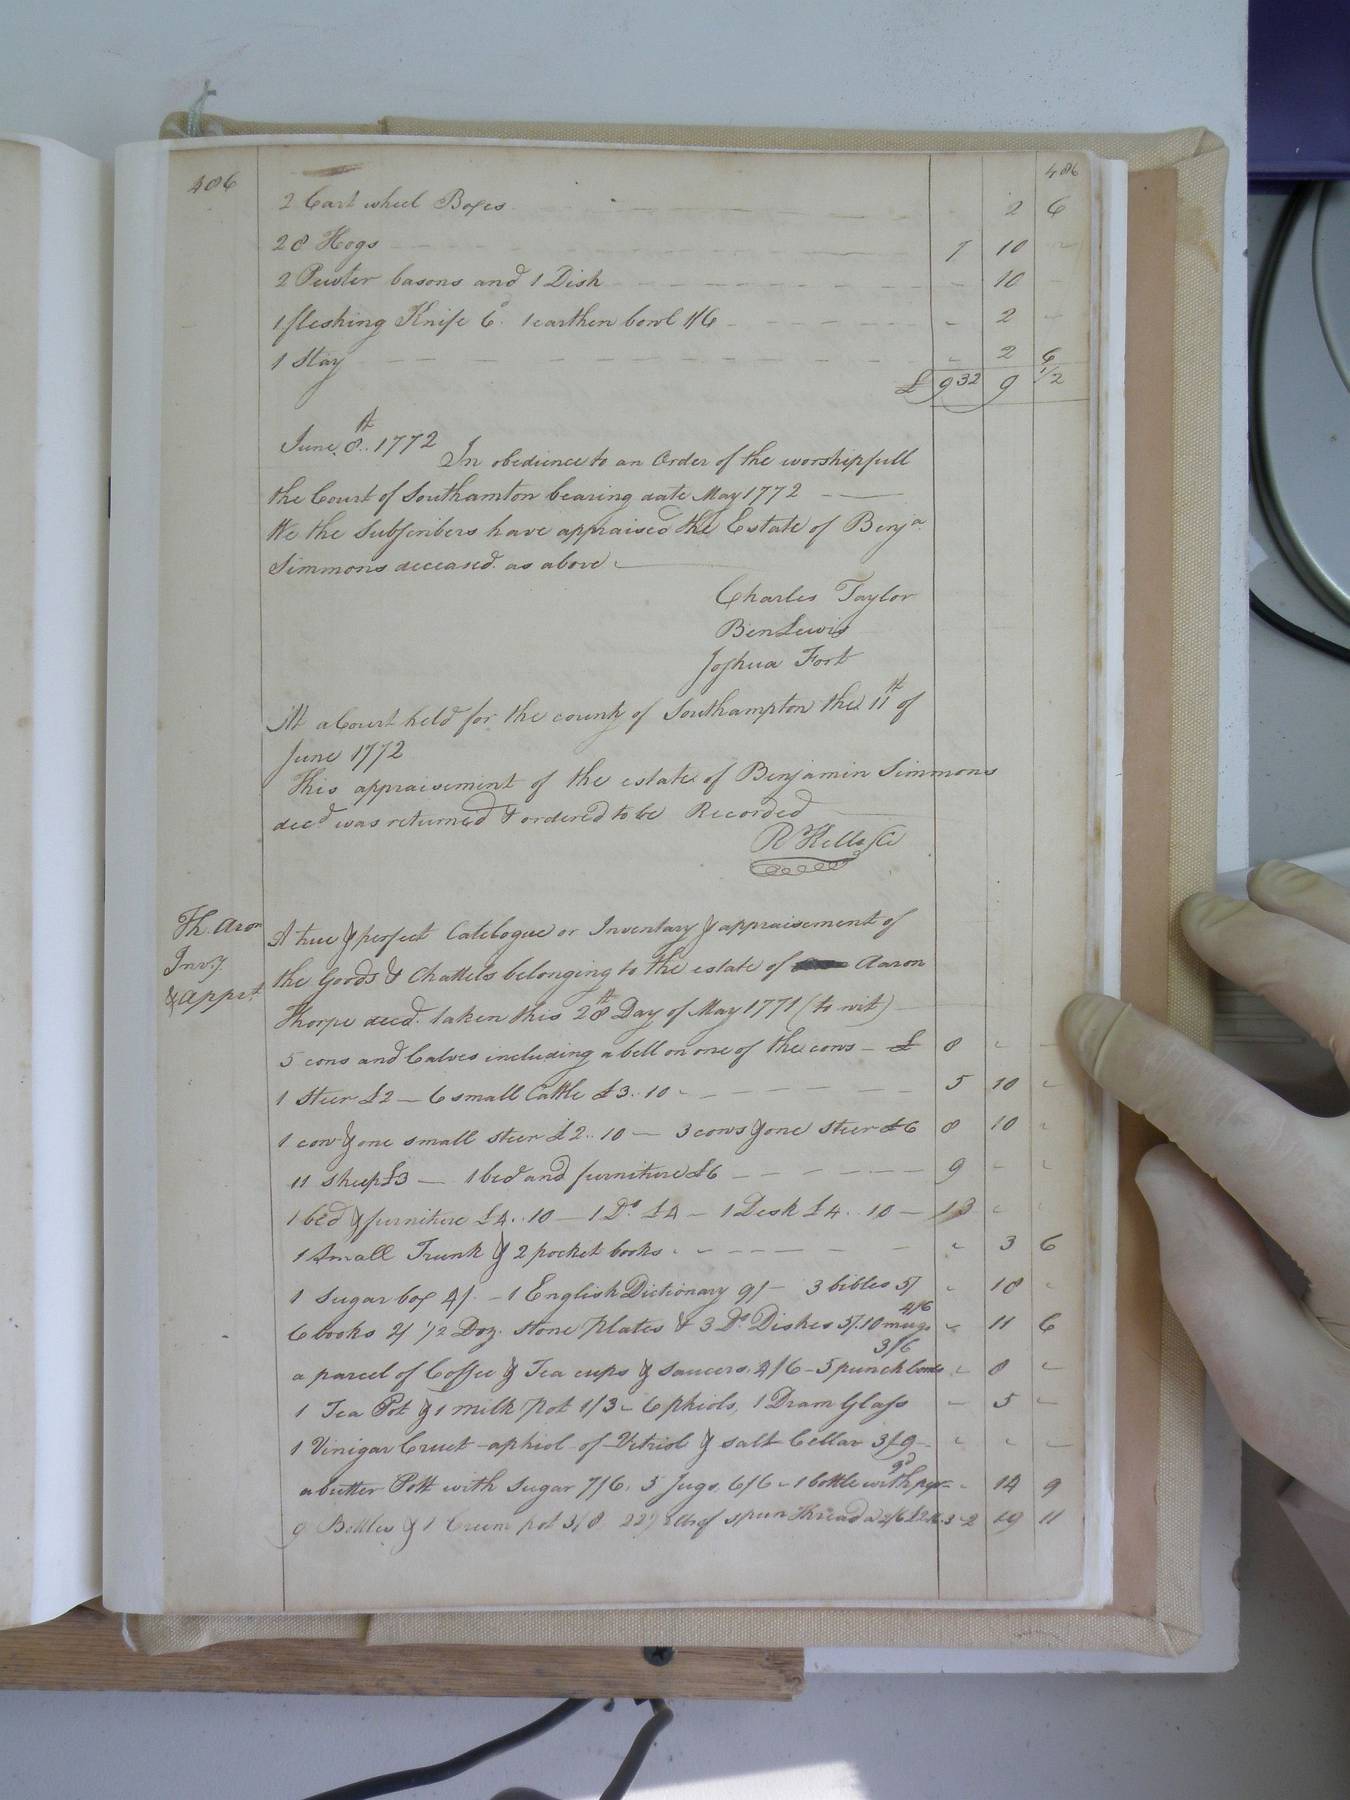 406 406
2 Cart wheel Boxes - - - 2 6
28 Hogs - - - 7 10 -
2 Pewter basons and 1 Dish - - - 10 -
1 fleshing Knife 6d. 1 earthen bowl 1/6 - - - 2 -
1 Stay - - - 2 6
£ 932 9 1/2
June 8th. 1772 In obedience to an Order of the worshipfull
the Court of Southamton bearing date May 1772
We the Subscribers have appraised the Estate of Benja.
Simmons deceased. as above
Charles Taylor
Ben Lewis
Joshua Fort
At a Court held for the county of Southampton the 11th of
June 1772
This appraisement of the estate of Benjamin Simmons
decd was returned & ordered to be Recorded
R Kello
Th. Aron
Invy.
& Appst
A true & perfect Catelogue or Inventary & appraisement of
the Goods & Chattels belonging to the estate of Aaron
Thorpe decd. taken this 28th Day of May 1771 (to wit)
5 cows and Calves including a bell on one of the cows - £ 8 - -
1 Steer £2 - 6 small Cattle £3..10 - - - 5 10 -
1 cow & one small steer £2..10 - 3 cows & one steer £6 8 10 -
11 sheep £3 - 1 bed and furniture £6 - - - 9 - -
1 bed & furniture £4..10 - 1 Do £4 - 1 Desk £4..10 - 13 - -
1 Small Trunk & 2 pocket books - - - 3 6
1 Sugar box 4/. - 1 English Dictionary 9/ - 3 bibles 5/ - 18 -
6 books 2/ 1/2 Doz. stone plates & 3 Do. Dishes 5/. 10 mugs 4/6 - 11 6
a parcel of Coffee & Tea cups & saucers 4/6 - 5 punch bowls 3/6 - 8 -
1 Tea Pot & 1 milk pot 1/3 - 6 phiols, 1 Dram Glass - 5 -
1 Vinigar Cruet - a phiol of Vitriol & salt Cellar 3/9 - - - -
a butter Pott with sugar 7/6. 5 Jugs 6/6 - 1 bottle with 9d - 14 9
9 Bottles & 1 Cream pot 3/8 lb of spun thread a 2/6 2 19 11